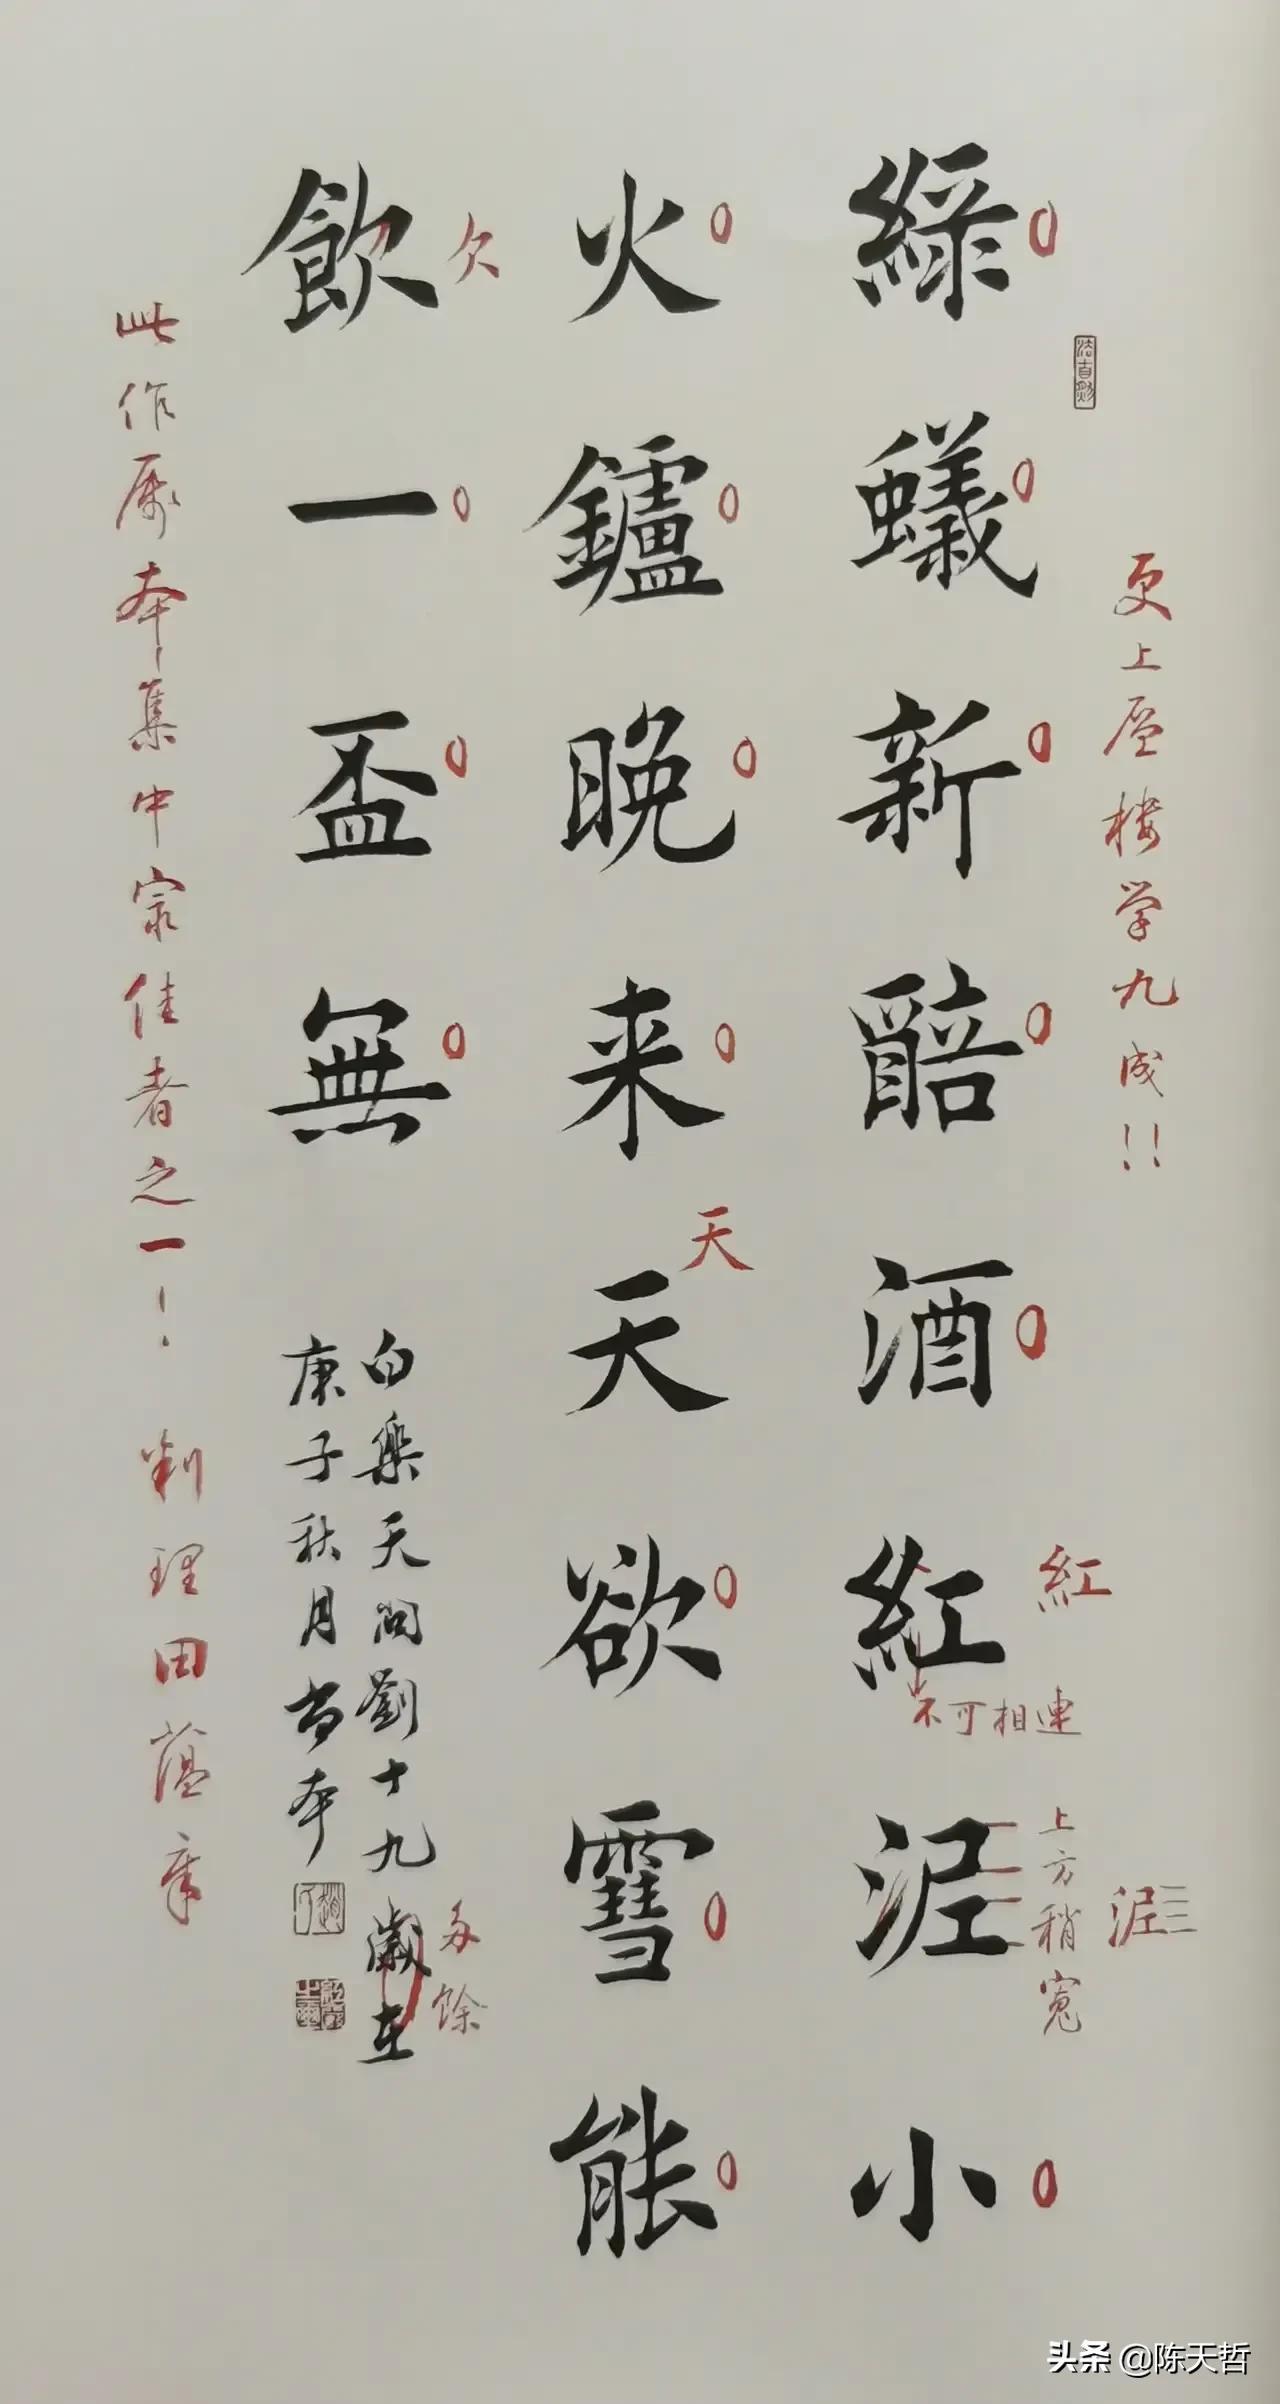 更上层楼学九成!!
綠蟻新醅酒紅泥小
火鑪晚来天欲雪能
飲一盃無
白樂天問劉十九
庚子秋月
此作属本集中寂佳者之一!
判理田蕴章
欠
天
紅
不可相連
上方稍寬
泥
多餘
头条 @陈天哲